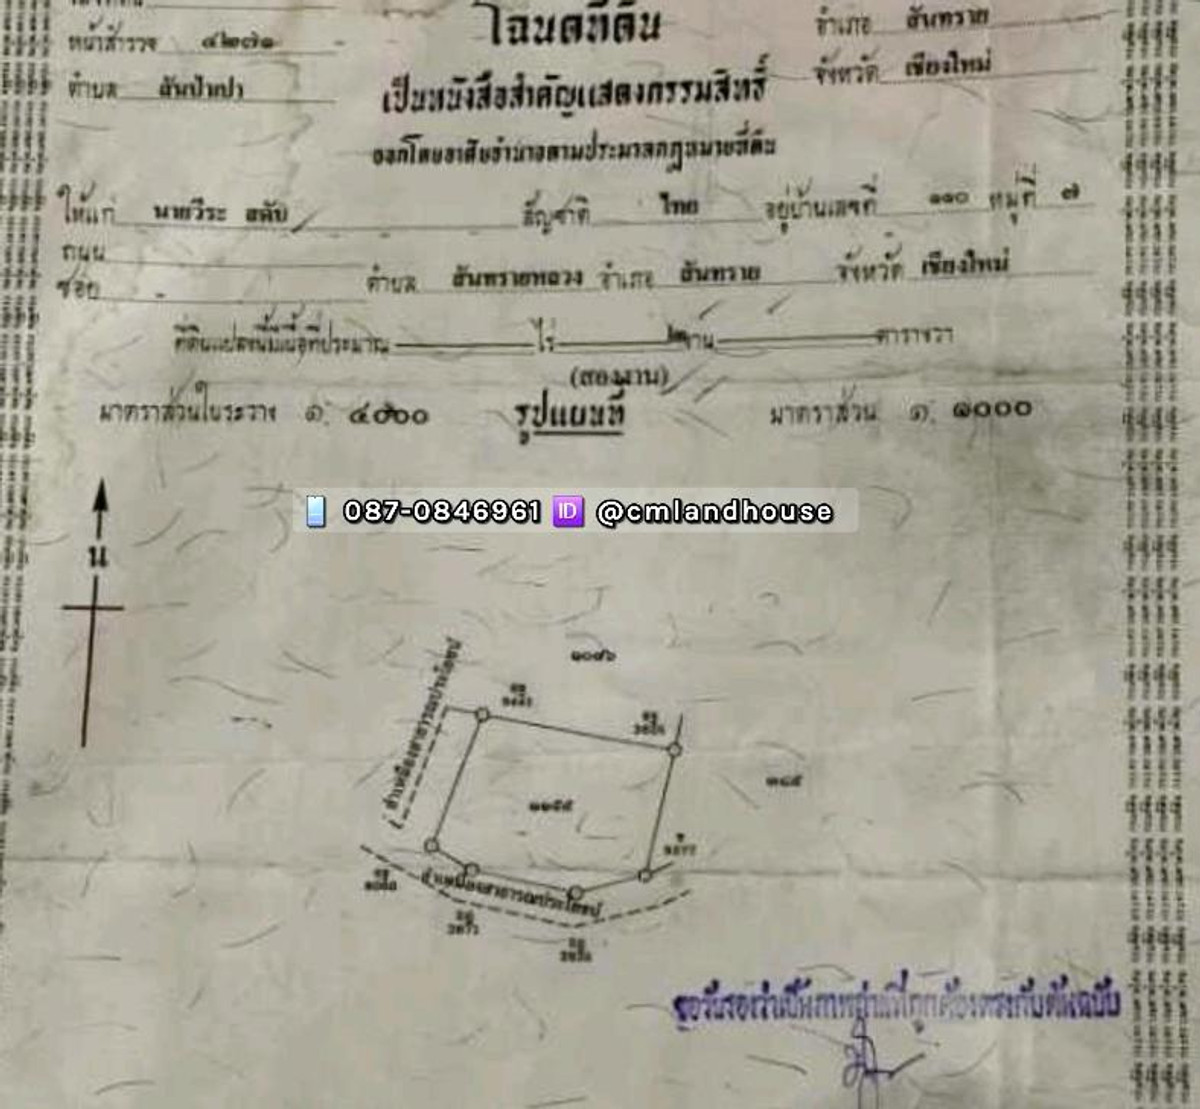 หน้าสำรวจ ๔๒๗๑ อำเภอ สันทราย
โฉนดที่ดิน
ตำบล สันป่าเปา จังหวัด เชียงใหม่
เป็นหนังสือสำคัญแสดงกรรมสิทธิ์
ออกโดยอาศัยอำนาจตามประมวลกฎหมายที่ดิน
ให้แก่ นายวีระ สัญชาติ ไทย อยู่บ้านเลขที่ ๑๑๐ หมู่ที่ ๗
ถนน
ซอย ตำบล สันทรายหลวง อำเภอ สันทราย จังหวัด เชียงใหม่
ที่ดินแปลงนี้มีเนื้อที่ประมาณ ไร่ งาน ตารางวา
(สองงาน)
มาตราส่วนในระวาง ๑: ๔๐๐๐ รูปแผนที่ มาตราส่วน ๑: ๑๐๐๐
087-0846961 ID @cmlandhouse
น
ลำเหมืองสาธารณประโยชน์
ลำเหมืองสาธารณประโยชน์
ขอรับรองว่าเป็นภาพถ่ายที่ถูกต้องตรงกับต้นฉบับ